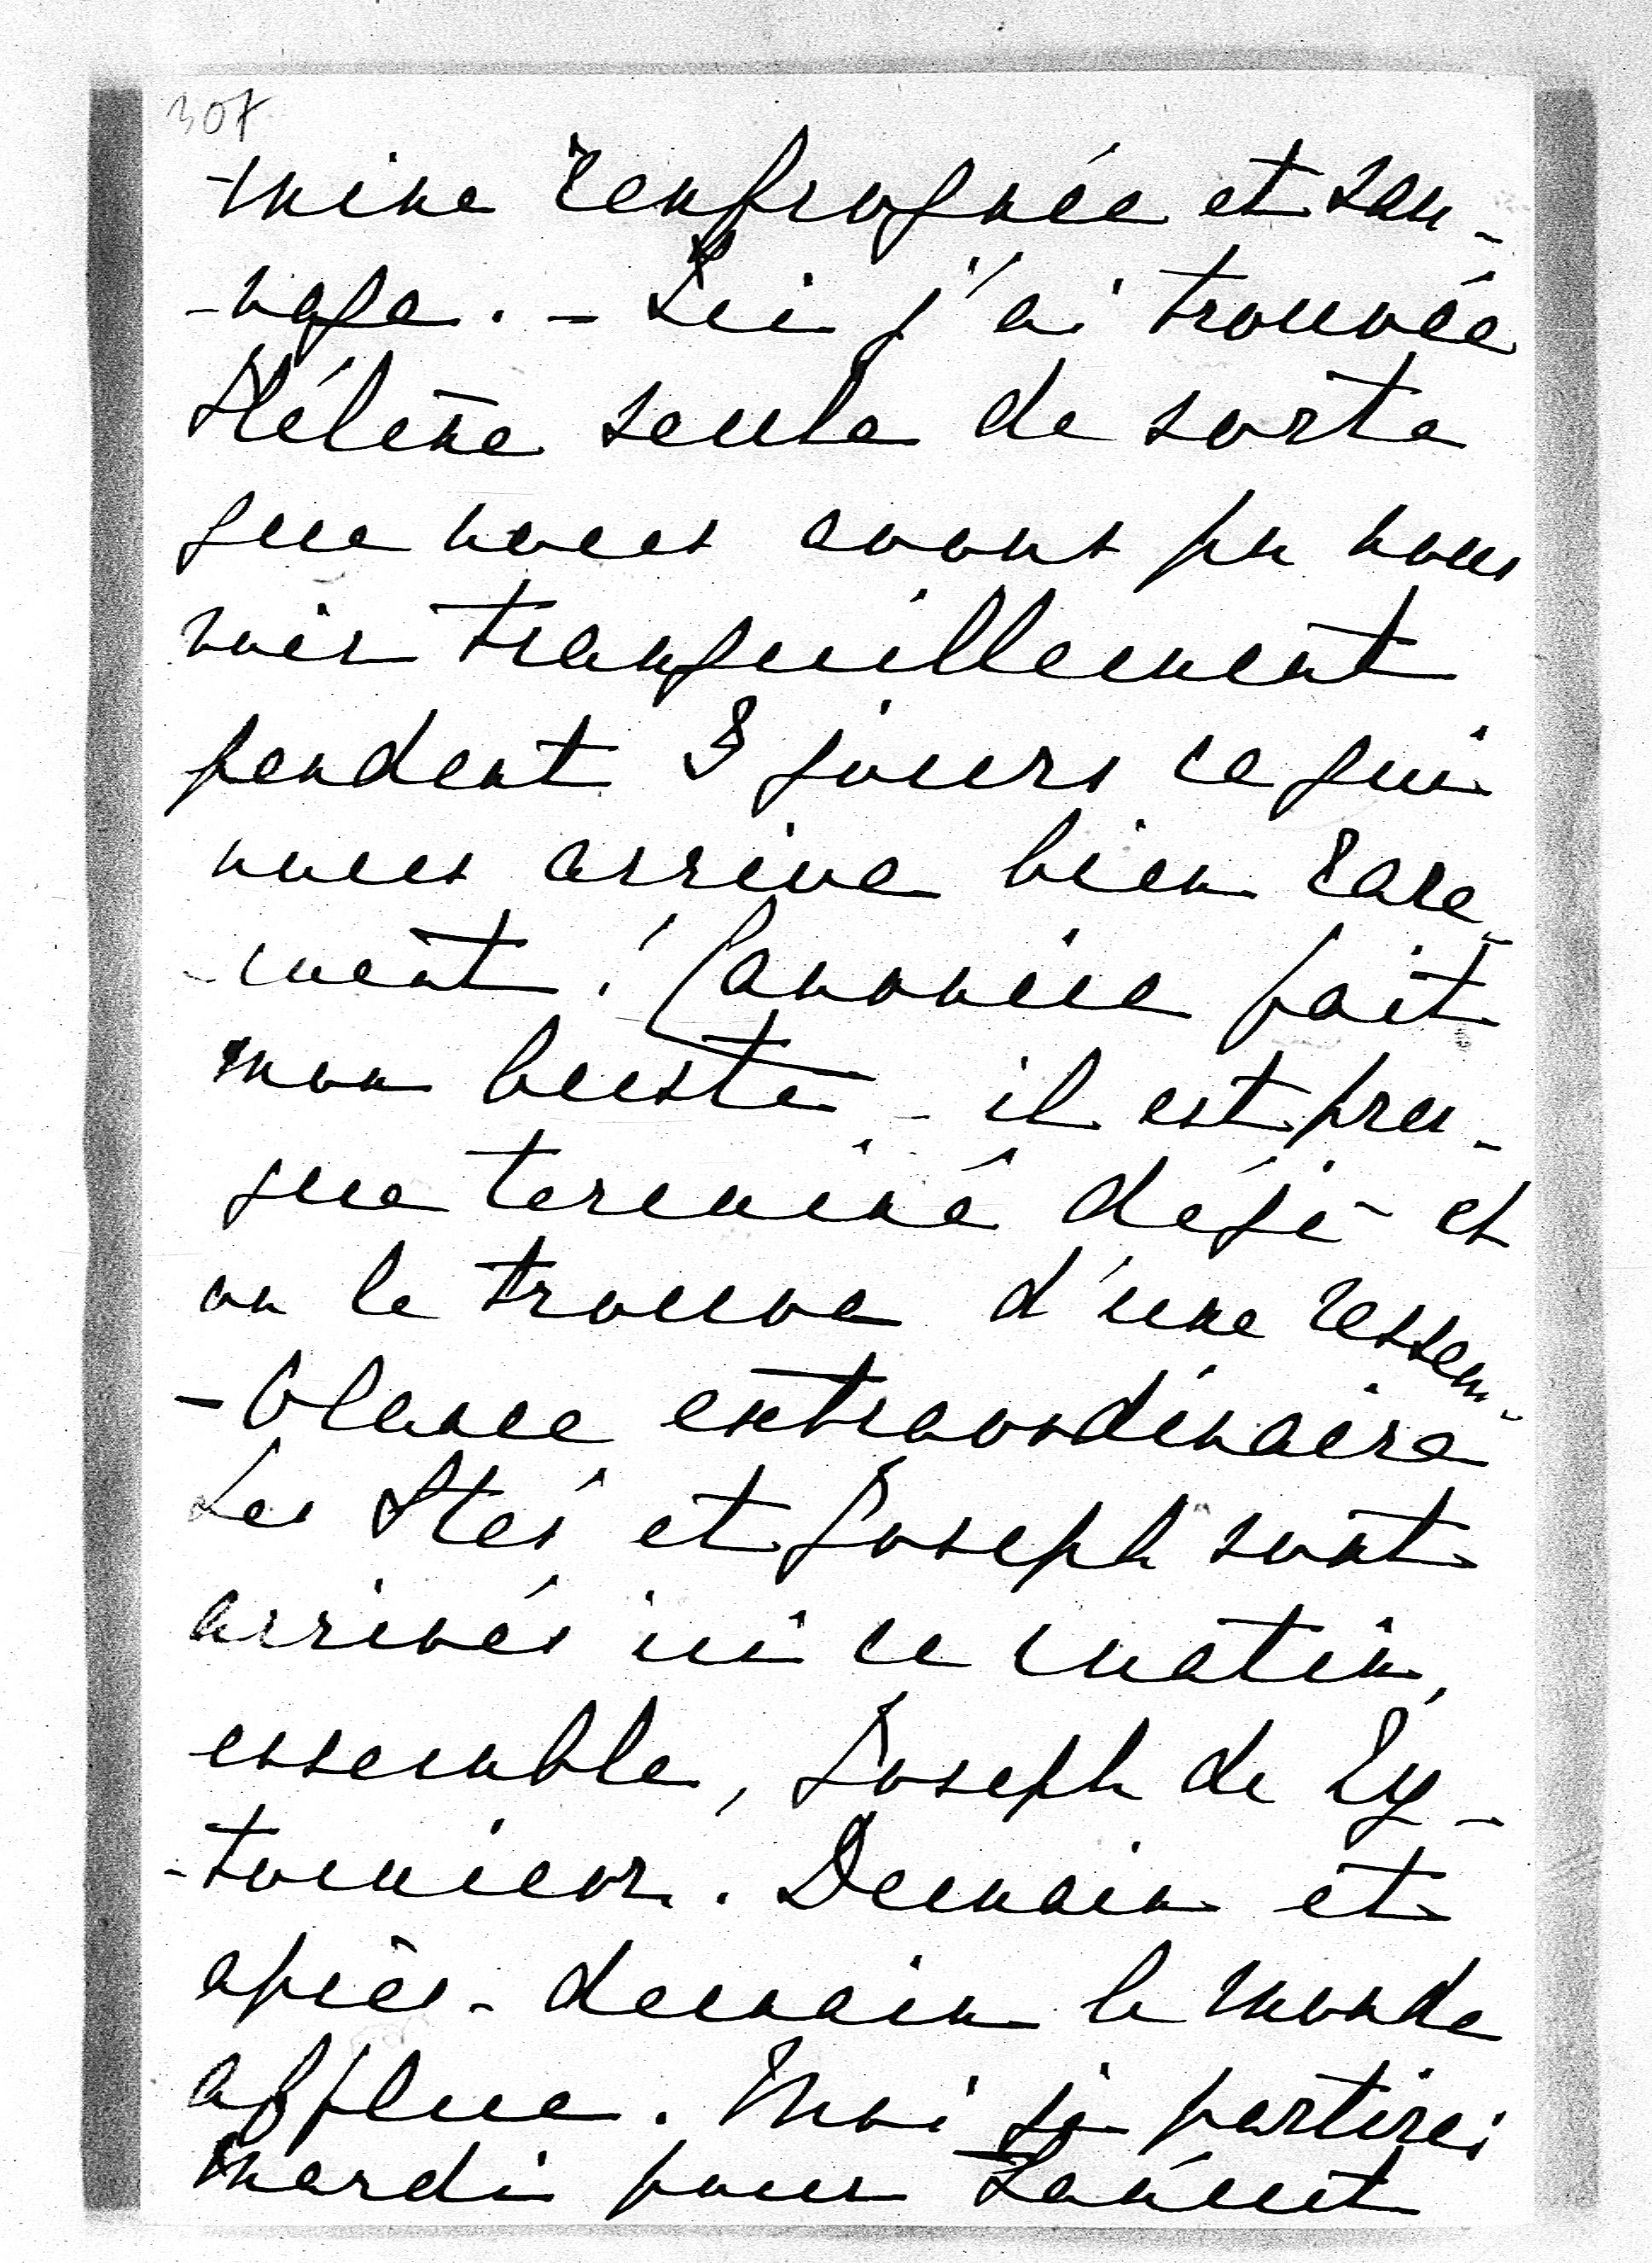 307
mine renfrognée et sau-
-vage. - Ici j'ai trouvée
Hélène seule de sorte
que nous avons pu nous
voir tranquillement
pendant 3 jours ce qui
nous arrive bien rare-
-ment! Canonica fait
mon buste - il est pres-
que terminé déjà - et
on le trouve d'une ressem-
-blance extraordinaire
Les Stes et Joseph sont
arrivés ici ce matin,
ensemble, Joseph de Ry-
-tomierz. Demain et
après-demain le monde
afflue. Moi je partirai
mardi pour Łańcut